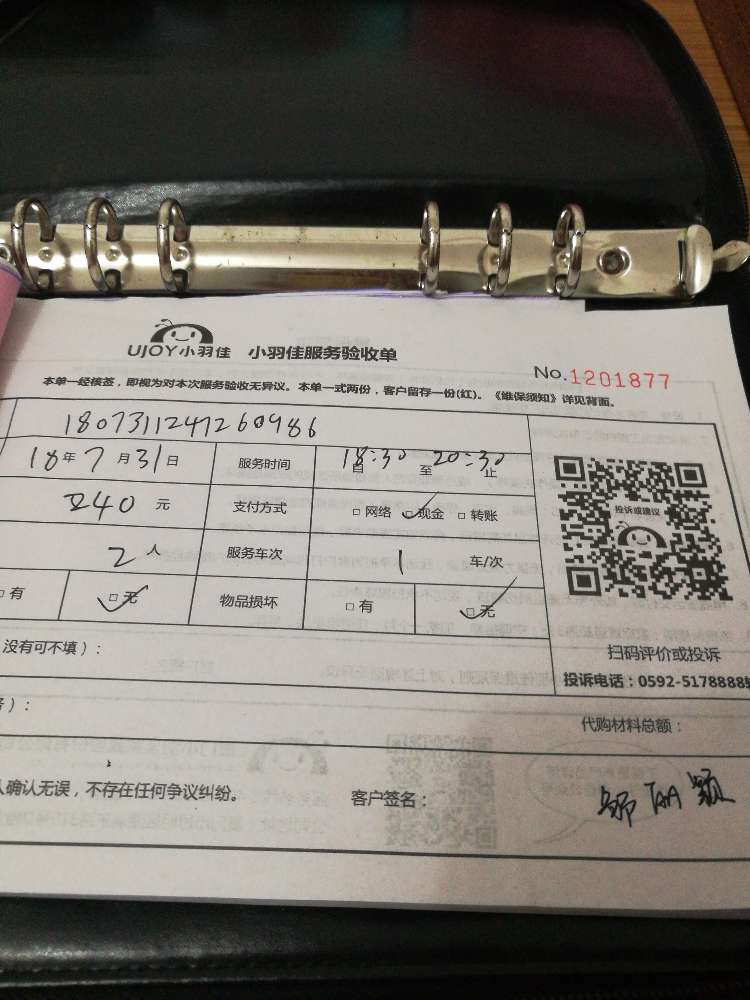 UJOY小羽佳 小羽佳服务验收单
No.1201877
本单一经核签,即视为对本次服务验收无异议。本单一式两份,客户留存一份(红)。《维保须知》详见背面。
1807311241260986
18年7月31日 服务时间 自18:30至20:30止
240元 支付方式 □网络 □现金 □转账
2人 服务车次 1 车/次
□有 □无 物品损坏 □有 □无
投诉或建议
扫码评价或投诉
没有可不填):
投诉电话:0592-5178888
):
代购材料总额:
人确认无误,不存在任何争议纠纷。 客户签名: